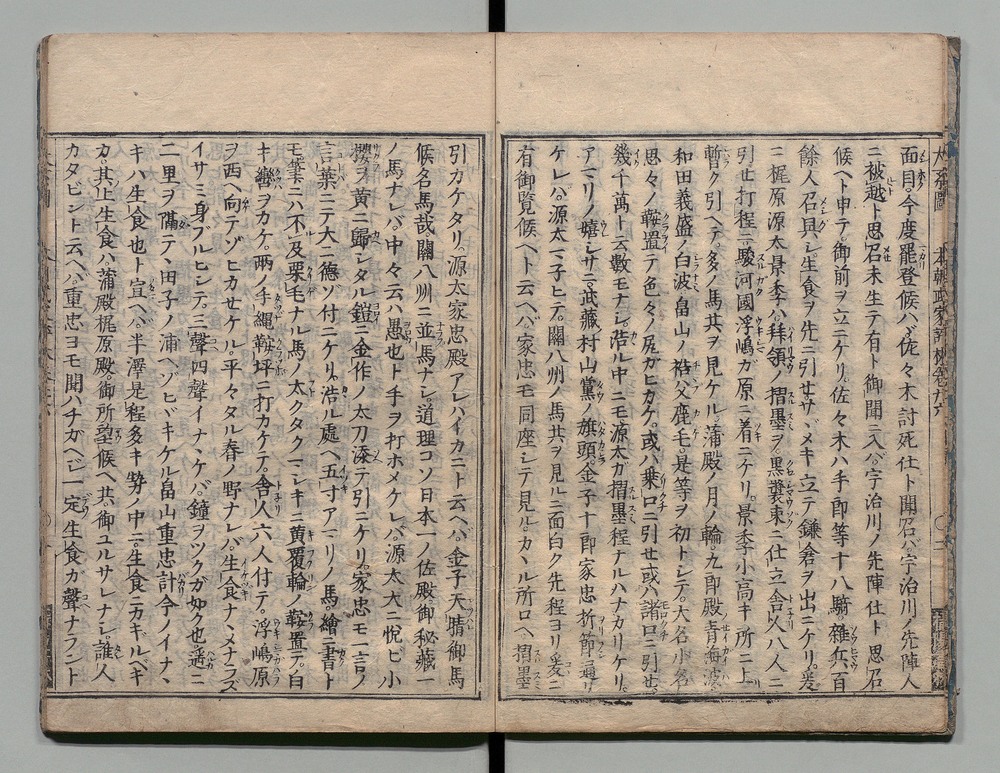 面目。今度罷登候ハヾ佐々木討死仕ト聞召バ宇治川ノ先陣人
ニ被越ト思召未生テ有ト御聞ニ入バ宇治川ノ先陣仕ト思召
候ヘト申テ御前ヲ立ニケリ。佐々木ハ手郎等十八騎雜兵百
餘人召具シ。生食ヲ先ニ引セサヾメキ立テ鎌倉ヲ出ニケリ。爰
ニ梶原源太景季ハ拜領ノ摺墨ヲ。黒裝束ニ仕立舎以八人ニ
引せ打程ニ。駿河國浮嶋ガ原ニ着ニケリ。景季小高キ所ニ上
暫ク引ヘテ。多ノ馬共ヲ見ケル。蒲殿ノ月ノ輪。九郎殿ノ青海波。
和田義盛ノ白波畠山ノ秩父鹿毛。是等ヲ初トシテ。大名小名
思々ノ鞍置テ色々ノ尻ガヒカケ。或ハ乗口ニ引せ或ハ諸口ニ引せ。
幾千萬ト云數モナシ。浩ル中ニモ源太ガ摺墨程ナルハナカリケリ。
アマリノ嬉シサニ武藏村山黨ノ旗頭。金子十郎家忠折節通リ
ケレバ。源太ニ子ヒテ。關八州ノ馬共ヲ見ルニ面白ク先程ヨリ爰ニ
有御覧候ヘト云ヘバ。家忠モ同座シテ見ル。カヽル所ロヘ摺墨
引カケタリ。源太家忠殿アレハイカニト云ヘバ。金子天晴御馬
候名馬哉。關八州ニ並馬ナシ。道理コソ日本一ノ佐殿御秘藏
ノ馬ナレバ。中々云ハ愚也ト手ヲ打ホメケレバ。源太大ニ悦ビ小
櫻ヲ黄ニ歸シタル鎧ニ金作ノ太刀添テ引ニケリ。家忠モ一言ノ
言葉ニテ大ニ徳ヅ付ニケリ。浩ル處ヘ五寸アマリノ馬繪ニ書ト
モ筆ニハ不及栗毛ナル馬ノ太クタクマシキニ黄覆輪ノ鞍置テ。白
キ轡ヲカケ。兩ノ手縄鞍坪ニ打カケテ。舎人六人付テ。浮嶋原
ヲ西ヘ向テゾヒカせケル。平々タル春ノ野ナレバ。生食ナヽメナラズ
イサミ身ブルヒシテ。三聲四聲イナヽケバ。鐘ヲツクガ如ク也。遥ニ
二里ヲ隔テ、田子ノ浦ヘゾヒビキケル。畠山重忠計今ノイナヽ
キハ生食也ト宣ヘバ。半澤是程多キ勢ノ中ニ。生食ニカギルベキ
カ。其上生食ハ蒲殿梶原殿。御所望候ヘ共。御ユルサレナシ。誰人
カタビントト云ヘバ。重忠ヨモ聞ハチガヘジ。一定生食ガ聲ナラント